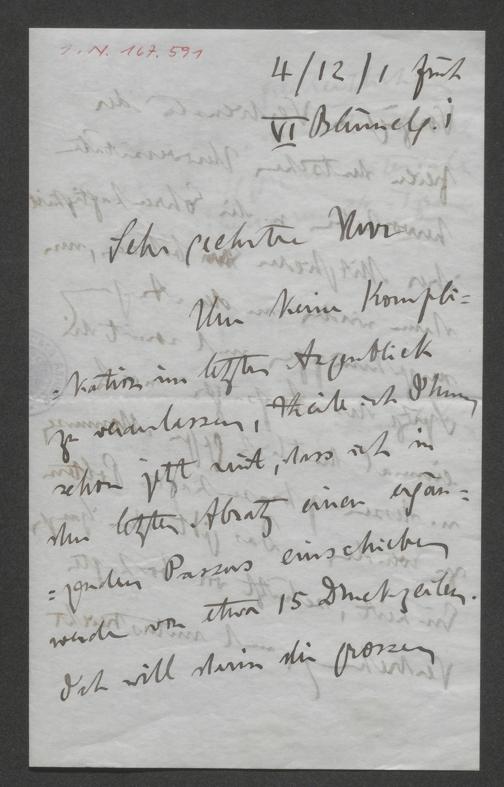 I.N. 167.591
4/12/1 früh
VI Blümelg. 1
Sehr geehrter Herr
Um keine Kompli=
=kation im letzten Augenblick
zu veranlassen, theile ich Ihnen
schon jetzt mit, dass ich in
den letzten Absatz einen ergän=
=zenden Passus einschieben
werde von etwa 15 Druckzeilen.
Ich will darin die grossen